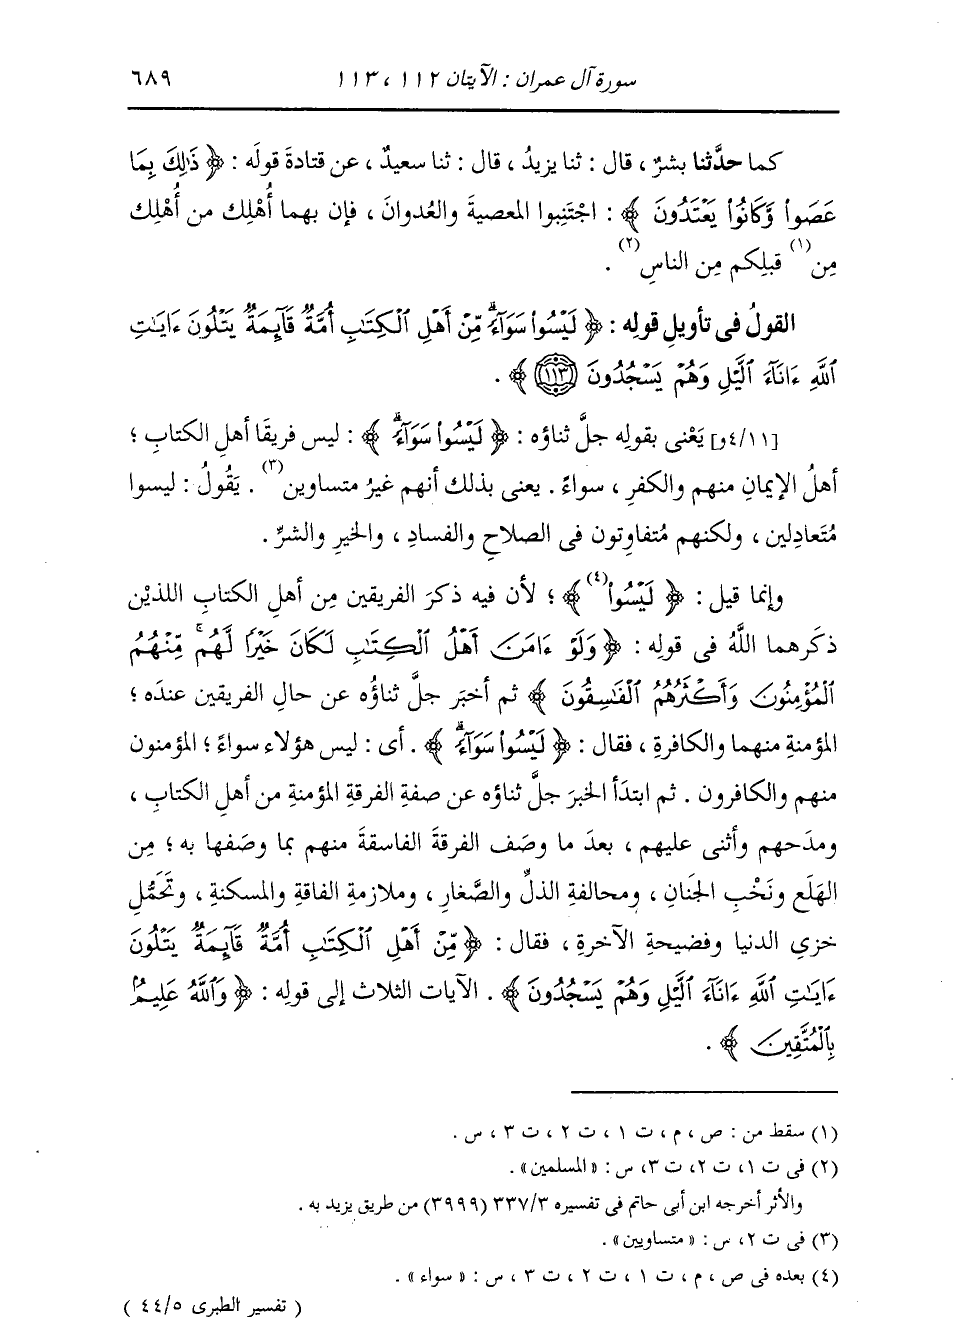 سورة آل عمران : الآيتان ١١٢ ، ١١٣
٦٨٩
كما حدَّثنا بشرٌ ، قال : ثنا يزيدُ ، قال : ثنا سعيدٌ ، عن قتادةَ قولَه : ﴿ ذَٰلِكَ بِمَا
عَصَوا۟ وَّكَانُوا۟ يَعْتَدُونَ ﴾ : اجْتَنِبوا المعصيةَ والعُدوانَ ، فإن بهما أُهْلِك من أُهْلِك
مِن(١) قبلِكم مِن الناسِ(٢) .
القولُ فى تأويلِ قولِه : ﴿ لَيْسُوا۟ سَوَآءً ۗ مِّنْ أَهْلِ ٱلْكِتَٰبِ أُمَّةٌ قَآئِمَةٌ يَتْلُونَ ءَايَٰتِ
ٱللَّهِ ءَانَآءَ ٱلَّيْلِ وَهُمْ يَسْجُدُونَ ١١٣ ﴾ .
[٤/١١و] يَعْنى بقولِه جلَّ ثناؤه : ﴿ لَيْسُوا۟ سَوَآءً ۗ ﴾ : ليس فريقَا أهلِ الكتابِ ؛
أهلُ الإيمانِ منهم والكفرِ ، سواءً . يعنى بذلك أنهم غيرُ متساوين(٣) . يَقُولُ : ليسوا
مُتَعادِلين ، ولكنهم مُتفاوِتون فى الصلاحِ والفسادِ ، والخيرِ والشرِّ .
وإنما قيل : ﴿ لَيْسُوا۟(٤) ﴾ ؛ لأن فيه ذكرَ الفريقين مِن أهلِ الكتابِ اللذيْن
ذكَرهما اللَّهُ فى قولِه : ﴿ وَلَوْ ءَامَنَ أَهْلُ ٱلْكِتَٰبِ لَكَانَ خَيْرًا لَّهُم ۚ مِّنْهُمُ
ٱلْمُؤْمِنُونَ وَأَكْثَرُهُمُ ٱلْفَٰسِقُونَ ﴾ ثم أخبَر جلَّ ثناؤُه عن حالِ الفريقين عندَه ؛
المؤمنةِ منهما والكافرةِ ، فقال : ﴿ لَيْسُوا۟ سَوَآءً ۗ ﴾ . أى : ليس هؤلاء سواءً ؛ المؤمنون
منهم والكافرون . ثم ابتدَأ الخبرَ جلَّ ثناؤه عن صفةِ الفرقةِ المؤمنةِ من أهلِ الكتابِ ،
ومدَحهم وأثنى عليهم ، بعدَ ما وصَف الفرقةَ الفاسقةَ منهم بما وصَفها به ؛ مِن
الهَلَعِ ونَخْبِ الجَنانِ ، ومحالفةِ الذلِّ والصَّغارِ ، وملازمةِ الفاقةِ والمسكنةِ ، وتَحَمُّلِ
خزىِ الدنيا وفضيحةِ الآخرةِ ، فقال : ﴿ مِّنْ أَهْلِ ٱلْكِتَٰبِ أُمَّةٌ قَآئِمَةٌ يَتْلُونَ
ءَايَٰتِ ٱللَّهِ ءَانَآءَ ٱلَّيْلِ وَهُمْ يَسْجُدُونَ ﴾ . الآيات الثلاث إلى قولِه : ﴿ وَٱللَّهُ عَلِيمٌۢ
بِٱلْمُتَّقِينَ ﴾ .
(١) سقط من : ص ، م ، ت ١ ، ت ٢ ، ت ٣ ، س .
(٢) فى ت ١، ت ٢، ت ٣، س : « المسلمين » .
والأثر أخرجه ابن أبى حاتم فى تفسيره ٣٣٧/٣ (٣٩٩٩) من طريق يزيد به .
(٣) فى ت ٢، س : « متساويين » .
(٤) بعده فى ص ، م ، ت ١ ، ت ٢ ، ت ٣ ، س : « سواء » .
( تفسير الطبرى ٤٤/٥ )